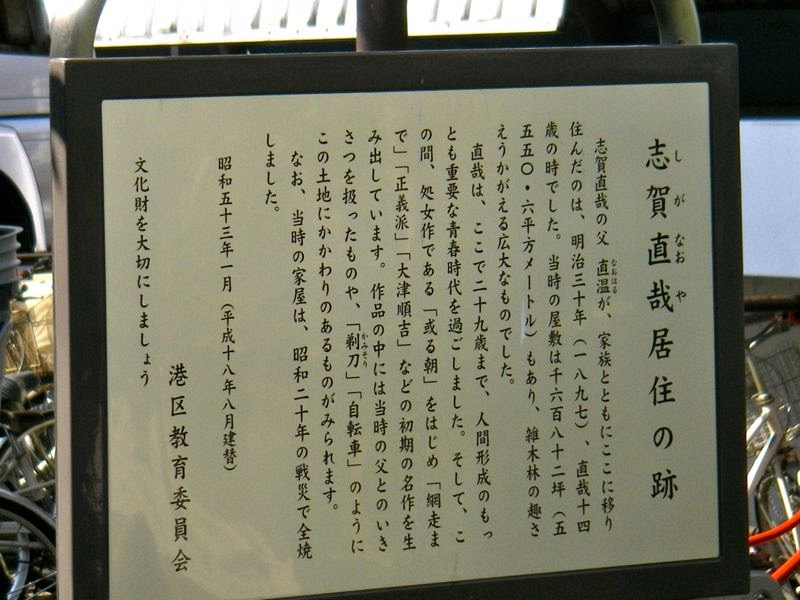 志賀直哉居住の跡
しがなおや
志賀直哉の父 直温が、家族とともにここに移り
なおはる
住んだのは、明治三十年（一八九七）、直哉十四
歳の時でした。当時の屋敷は千六百八十二坪（五
五五〇・六平方メートル）もあり、雑木林の趣さ
えうかがえる広大なものでした。
直哉は、ここで二十九歳まで、人間形成のもっ
とも重要な青春時代を過ごしました。そして、こ
の間、処女作である「或る朝」をはじめ「網走ま
で」「正義派」「大津順吉」などの初期の名作を生
み出しています。作品の中には当時の父とのいき
さつを扱ったものや、「剃刀」「自転車」のように
かみそり
この土地にかかわりのあるものがみられます。
なお、当時の家屋は、昭和二十年の戦災で全焼
しました。
昭和五十三年一月（平成十八年八月建替）
港区教育委員会
文化財を大切にしましょう